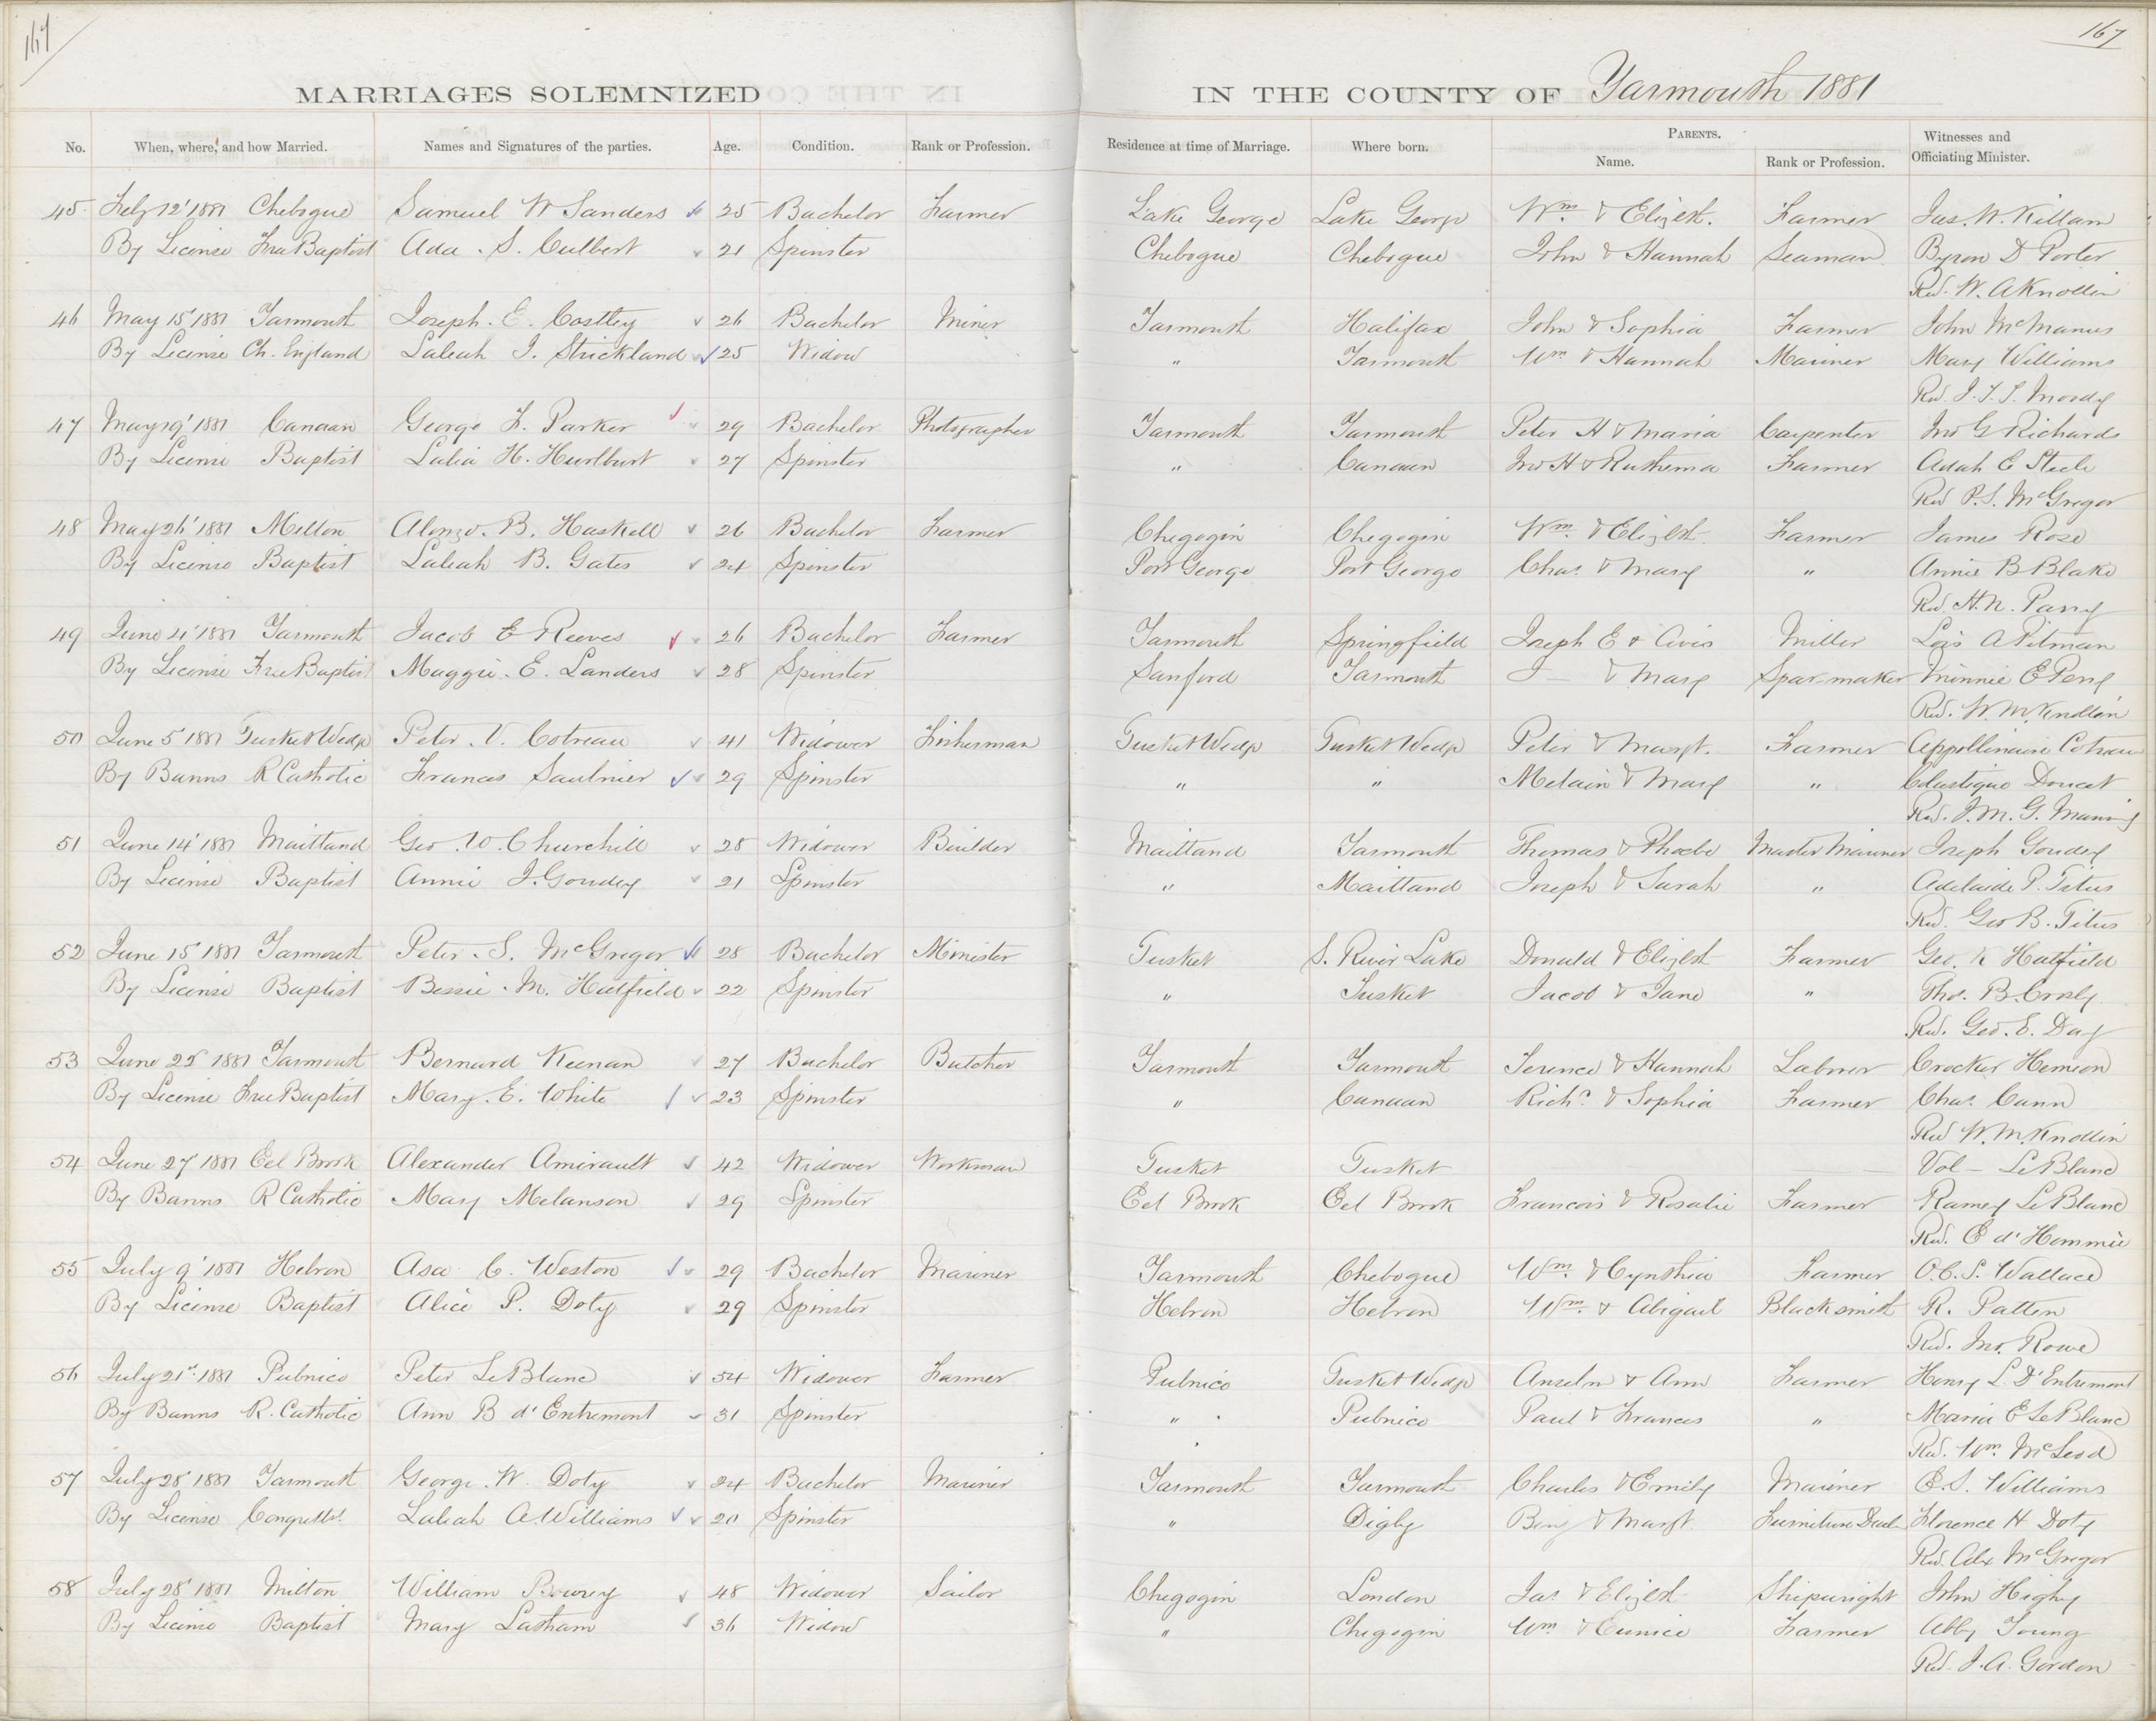 167
167
MARRIAGES SOLEMNIZED IN THE COUNTY OF Yarmouth 1881
No. When, where, and how Married. Names and Signatures of the parties. Age. Condition. Rank or Profession. Residence at time of Marriage. Where born. PARENTS. Name. Rank or Profession. Witnesses and Officiating Minister.
45 Feby 12' 1881 Chebogue Samuel W Sanders 25 Bachelor Farmer Lake George Lake George Wm. & Elizbt. Farmer Jas. W. Killam
By License Free Baptist Ada. S. Culbert 21 Spinster Chebogue Chebogue John & Hannah Seaman Byron D Porter
Rev. W. A Knollin
46 May 15' 1881 Yarmouth Joseph. E. Costley 26 Bachelor Miner Yarmouth Halifax John & Sophia Farmer John McManus
By License Ch. England Laleah J. Strickland 25 Widow " Yarmouth Wm & Hannah Mariner Mary Williams
Rev. J. T. T. Moody
47 May 19' 1881 Canaan George F. Parker 29 Bachelor Photographer Yarmouth Yarmouth Peter H & Maria Carpenter Jno G Richards
By License Baptist Lalia H. Hurlburt 27 Spinster " Canaan Jno H & Ruthema Farmer Adah E Steele
Rev P. S. McGregor
48 May 26' 1881 Milton Alonzo. B. Haskell 26 Bachelor Farmer Chegogin Chegogin Wm. & Elizbt. Farmer James Rose
By License Baptist Laleah B. Gates 24 Spinster Port George Port George Chas. & Mary " Annie B Blake
Rev. H. N. Parry
49 June 4' 1881 Yarmouth Jacob E Reeves 26 Bachelor Farmer Yarmouth Springfield Joseph E & Avis Miller Lois A Pitman
By License Free Baptist Maggie. E. Landers 28 Spinster Sanford Yarmouth J— & Mary Spar-maker Minnie E Perry
Rev. W. M. Knollin
50 June 5' 1881 Tusket Wedge Peter. V. Cotreau 41 Widower Fisherman Tusket Wedge Tusket Wedge Peter & Margt. Farmer Appollinaire Cotreau
By Banns R Catholic Frances Saulnier 29 Spinster " " Melain & Mary " Celestique Doucet
Rev. J. M. G.
51 June 14' 1881 Maitland Geo. W. Churchill 25 Widower Builder Maitland Yarmouth Thomas & Phoebe Master Mariner Joseph Goudey
By License Baptist Annie J. Goudey 21 Spinster " Maitland Joseph & Sarah " Adelaide P. Titus
Rev. Geo B. Titus
52 June 15' 1881 Yarmouth Peter. S. McGregor 28 Bachelor Minister Tusket S. River Lake Donald & Elizbt Farmer Geo. K Hatfield
By License Baptist Bessie. M. Hatfield 22 Spinster " Tusket Jacob & Jane " Thos. B. Crosby
Rev. Geo. E. Day
53 June 25' 1881 Yarmouth Bernard Keenan 27 Bachelor Butcher Yarmouth Yarmouth Terence & Hannah Laborer Crocker Hemeon
By License Free Baptist Mary. E. White 23 Spinster " Canaan Richd. & Sophia Farmer Chas. Cann
Rev W. M. Knollin
54 June 27' 1881 Eel Brook Alexander Amirault 42 Widower Workman Tusket Tusket Vol— LeBlanc
By Banns R Catholic Mary Melanson 29 Spinster Eel Brook Eel Brook Francois & Rosalie Farmer Ramey LeBlanc
Rev. E d'Hommie
55 July 9' 1881 Hebron Asa C. Weston 29 Bachelor Mariner Yarmouth Chebogue Wm. & Cynthia Farmer O. C. S. Wallace
By License Baptist Alice P. Doty 29 Spinster Hebron Hebron Wm. & Abigail Blacksmith R. Patten
Rev. Jno. Rowe
56 July 21st 1881 Pubnico Peter LeBlanc 54 Widower Farmer Pubnico Tusket Wedge Anselm & Ann Farmer Henry L. D'Entremont
By Banns R. Catholic Ann B d'Entremont 31 Spinster " Pubnico Paul & Frances " Maria E LeBlanc
Rev. Wm McLeod
57 July 28' 1881 Yarmouth George. W. Doty 24 Bachelor Mariner Yarmouth Yarmouth Charles & Emily Mariner E. S. Williams
By License Congretl. Laleah A. Williams 20 Spinster " Digby Benj & Margt. Furniture Deal Florence H Doty
Rev. Alx McGregor
58 July 28' 1881 Milton William Bowrey 48 Widower Sailor Chegogin London Jas. & Elizbt Shipwright John Highy
By License Baptist Mary Latham 36 Widow " Chegogin Wm & Eunice Farmer Abby Young
Rev. J. A. Gordon